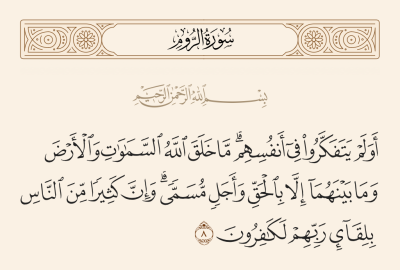 سُورَةُ الرُّومِ
بِسْمِ اللَّهِ الرَّحْمَٰنِ الرَّحِيمِ
أَوَلَمْ يَتَفَكَّرُوا۟ فِىٓ أَنفُسِهِم ۗ مَّا خَلَقَ ٱللَّهُ ٱلسَّمَٰوَٰتِ وَٱلْأَرْضَ
وَمَا بَيْنَهُمَآ إِلَّا بِٱلْحَقِّ وَأَجَلٍ مُّسَمًّى ۗ وَإِنَّ كَثِيرًا مِّنَ ٱلنَّاسِ
بِلِقَآئِ رَبِّهِمْ لَكَٰفِرُونَ ٨